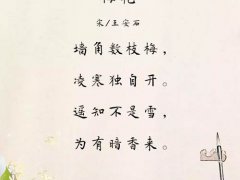 梅花
宋/王安石
墙角数枝梅，
凌寒独自开。
遥知不是雪，
为有暗香来。